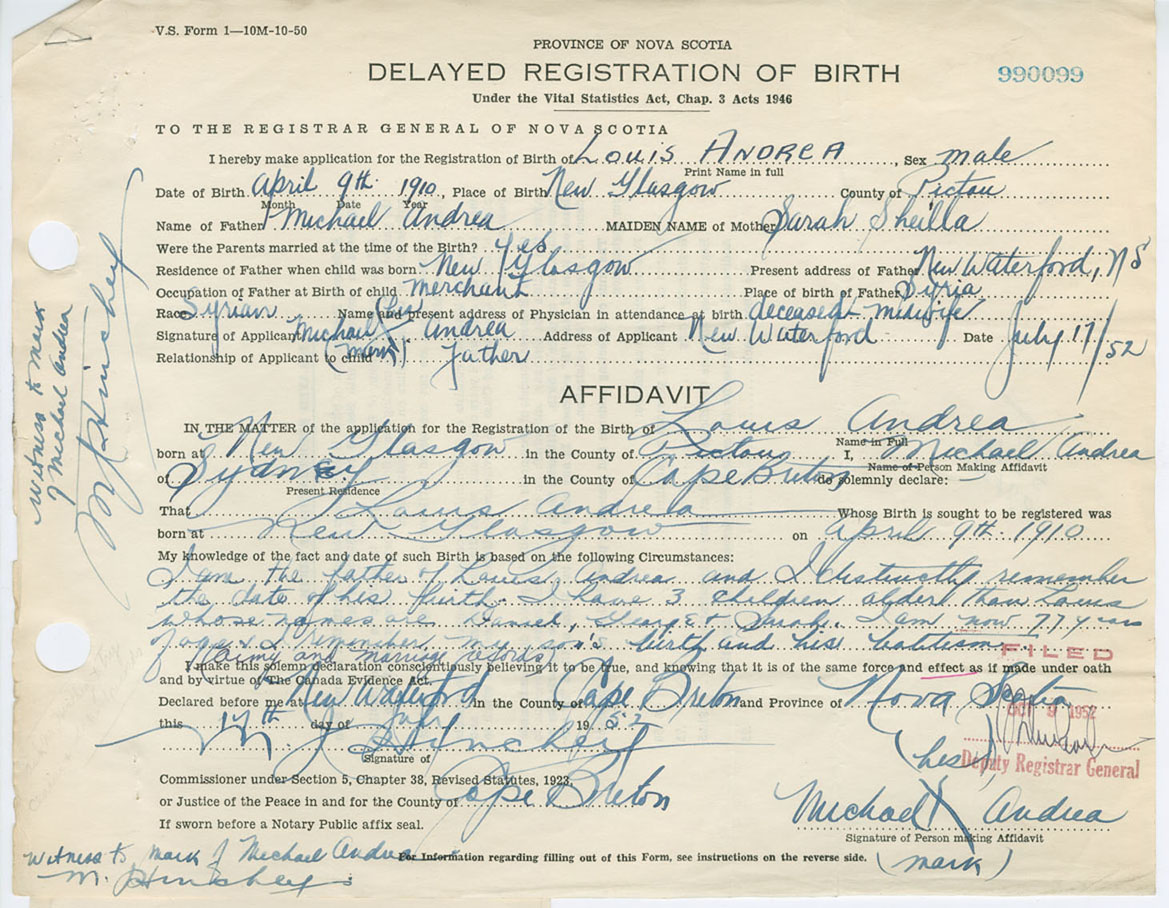 V.S. Form 1—10M-10-50
PROVINCE OF NOVA SCOTIA
DELAYED REGISTRATION OF BIRTH
990099
Under the Vital Statistics Act, Chap. 3 Acts 1946
TO THE REGISTRAR GENERAL OF NOVA SCOTIA
I hereby make application for the Registration of Birth of Louis Andrea, Sex male
Print Name in full
Date of Birth April 9th 1910, Place of Birth New Glasgow County of Pictou
Month Date Year
Name of Father Michael Andrea MAIDEN NAME of Mother Sarah Sheilla
Were the Parents married at the time of the Birth? yes
Residence of Father when child was born New Glasgow Present address of Father New Waterford, NS
Occupation of Father at Birth of child merchant Place of birth of Father Syria
Race Syrian Name and present address of Physician in attendance at birth deceased - midwife
Signature of Applicant Michael X Andrea Address of Applicant New Waterford Date July 17/52
(mark)
Relationship of Applicant to child Father
AFFIDAVIT
IN THE MATTER of the application for the Registration of the Birth of Louis Andrea
Name in Full
born at New Glasgow in the County of Pictou I, Michael Andrea
Name of Person Making Affidavit
of Sydney in the County of Cape Breton do solemnly declare:—
Present Residence
That Louis Andrea Whose Birth is sought to be registered was
born at New Glasgow on April 9th. 1910
My knowledge of the fact and date of such Birth is based on the following Circumstances:
I am the father of Louis Andrea and I distinctly remember
the date of his birth. I have 3 children older than Louis
whose names are Daniel, George & Sarah. I am now 77 years
of age & I remember my son's birth and his batism
(army and marriage records)
FILED
I make this solemn declaration conscientiously believing it to be true, and knowing that it is of the same force and effect as if made under oath
and by virtue of The Canada Evidence Act.
Declared before me at New Waterford in the County of Cape Breton and Province of Nova Scotia
OCT 9 1952
this 17th day of July 1952
M. J. Hinchey
Signature of
(his)
Deputy Registrar General
Commissioner under Section 5, Chapter 38, Revised Statutes, 1923,
or Justice of the Peace in and for the County of Cape Breton
Michael X Andrea
If sworn before a Notary Public affix seal.
Signature of Person making Affidavit
(mark)
For Information regarding filling out of this Form, see instructions on the reverse side.
witness to mark of Michael Andrea
M. Hinchey
witness to mark
of Michael Andrea
M J Hinchey